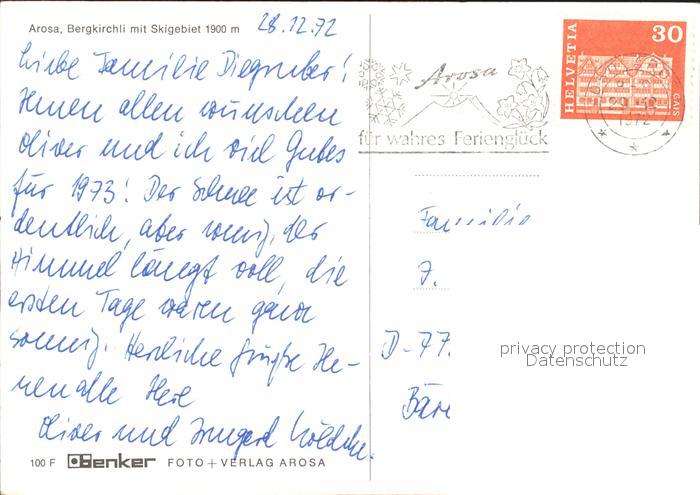 Arosa, Bergkirchli mit Skigebiet 1900 m
28.12.72
Liebe Familie
Ihnen allen wünschen
Oliver und ich viel Gutes
für 1973! Der Schnee ist or-
dentlich, aber wenig, der
Himmel hängt voll, die
ersten Tage waren ganz
sonnig. Herzliche Grüße Ih-
nen alle Ihre
Oliver und Irmgard
100 F Benker FOTO + VERLAG AROSA
HELVETIA
30
GAIS
Arosa
für wahres Ferienglück
Familie
J.
D-77.
Bäre
privacy protection
Datenschutz